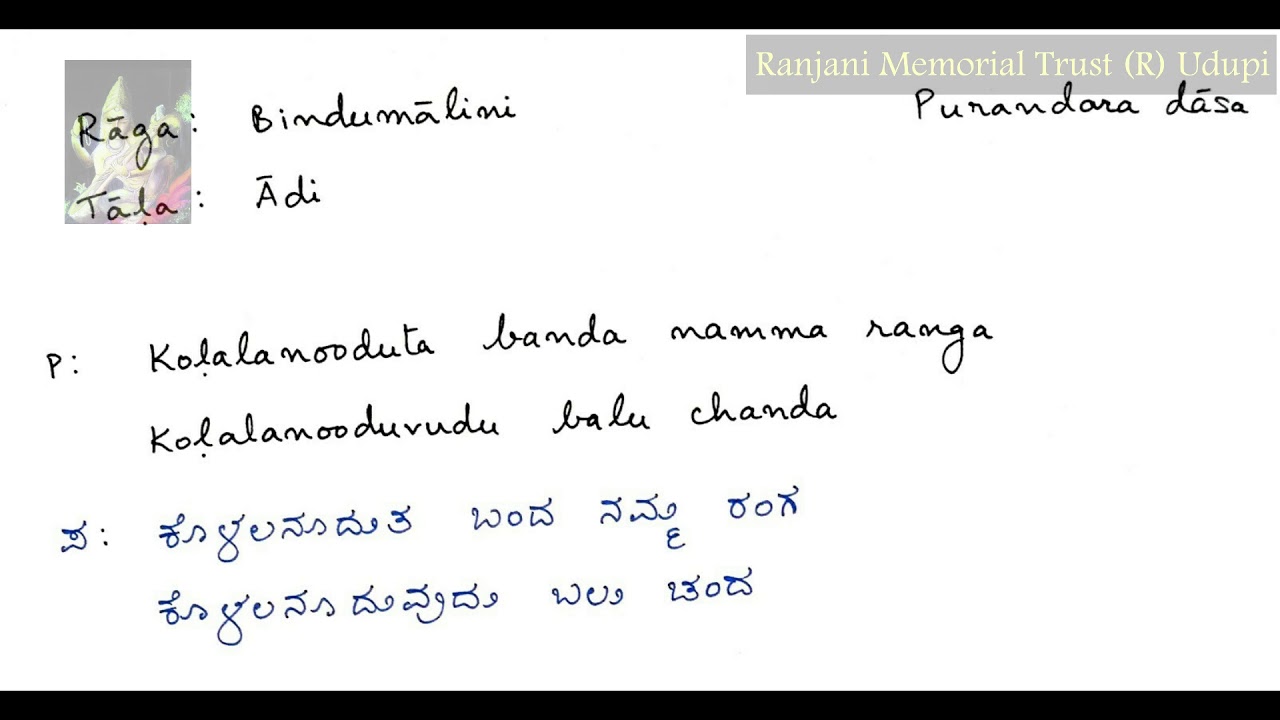 Ranjani Memorial Trust (R) Udupi
Rāga: Bindumālini Purandara dāsa
Tāḷa: Ādi
P: Koḷalanooduta banda namma ranga
Koḷalanooduvudu balu chanda
ಪ: ಕೊಳಲನೂದುತ ಬಂದ ನಮ್ಮ ರಂಗ
ಕೊಳಲನೂದುವುದು ಬಲು ಚಂದ